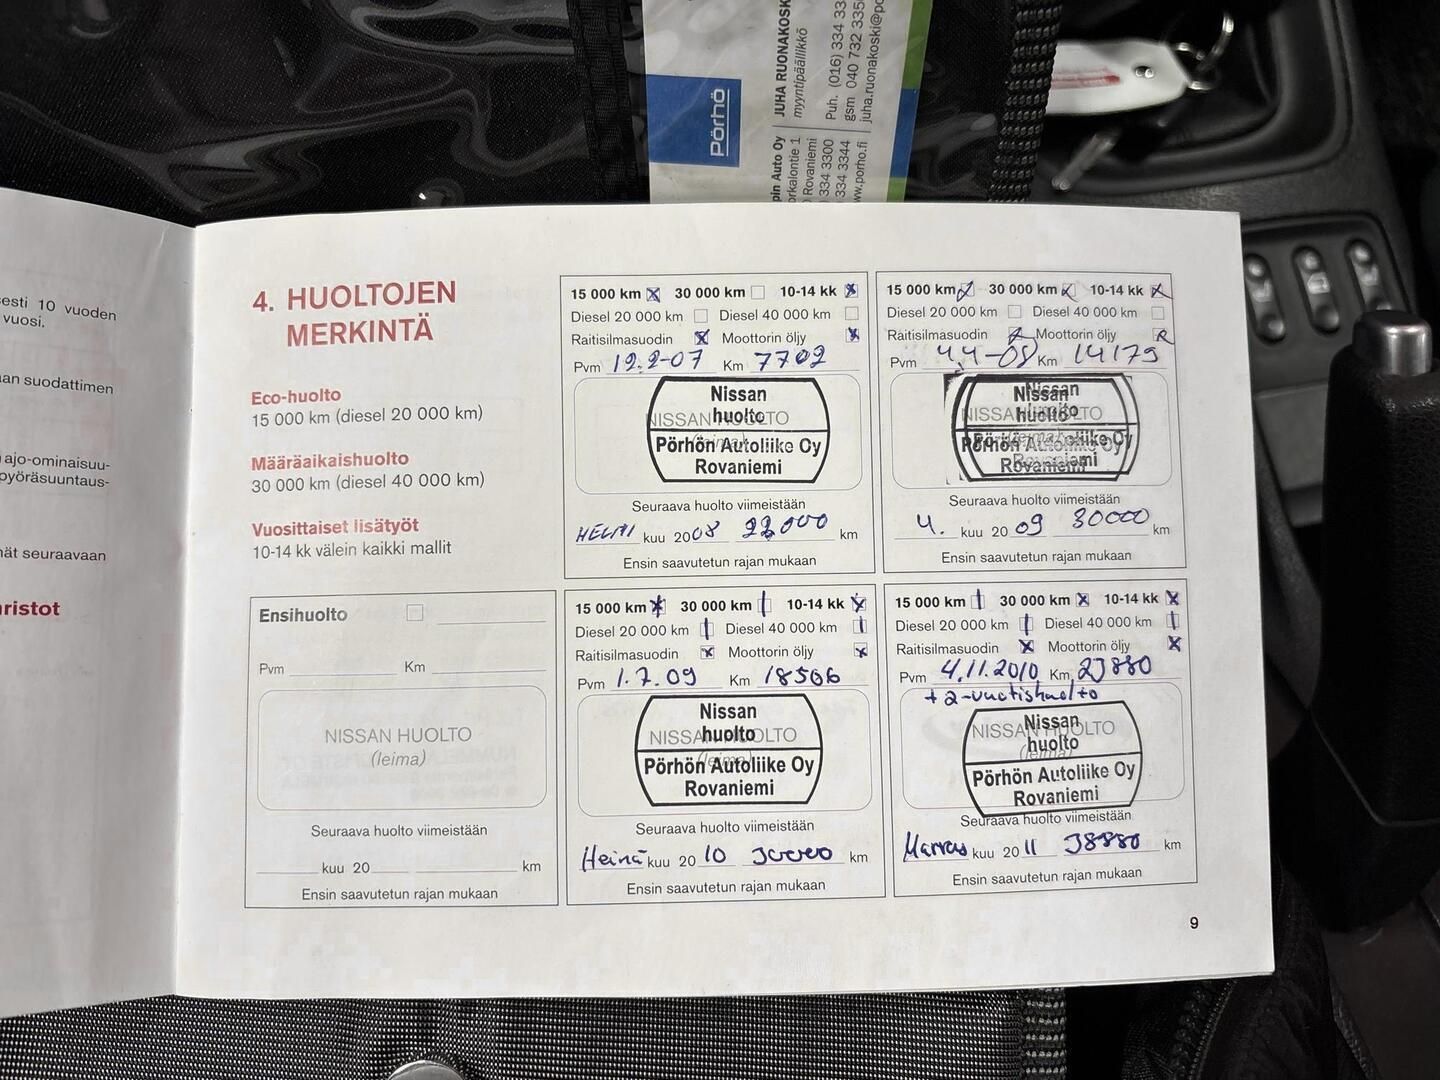 Pörhö
JUHA RUONAKOSK
myyntipäällikkö
Puh. (016) 334 33
gsm 040 732 335
juha.ruonakoski@po
pin Auto Oy
orkalontie 1
Rovaniemi
334 3300
334 3344
ww.porho.fi
esti 10 vuoden
vuosi.
an suodattimen
ajo-ominaisuu-
pyöräsuuntaus-
nät seuraavaan
aristot
4. HUOLTOJEN
MERKINTÄ
Eco-huolto
15 000 km (diesel 20 000 km)
Määräaikaishuolto
30 000 km (diesel 40 000 km)
Vuosittaiset lisätyöt
10-14 kk välein kaikki mallit
15 000 km x 30 000 km 10-14 kk x
Diesel 20 000 km Diesel 40 000 km
Raitisilmasuodin x Moottorin öljy x
Pvm 12.2-07 Km 7702
NISSAN HUOLTO
(leima)
Nissan
huolto
Pörhön Autoliike Oy
Rovaniemi
Seuraava huolto viimeistään
HELMI kuu 2008 22000 km
Ensin saavutetun rajan mukaan
15 000 km x 30 000 km x 10-14 kk x
Diesel 20 000 km Diesel 40 000 km
Raitisilmasuodin x Moottorin öljy x
Pvm 4.4-08 Km 14179
NISSAN HUOLTO
Nissan
huolto
Pörhön Autoliike Oy
Rovaniemi
Seuraava huolto viimeistään
4. kuu 20 09 30000 km
Ensin saavutetun rajan mukaan
Ensihuolto
Pvm Km
NISSAN HUOLTO
(leima)
Seuraava huolto viimeistään
kuu 20 km
Ensin saavutetun rajan mukaan
15 000 km x 30 000 km | 10-14 kk x
Diesel 20 000 km | Diesel 40 000 km |
Raitisilmasuodin x Moottorin öljy x
Pvm 1.7.09 Km 18506
NISSAN HUOLTO
(leima)
Nissan
huolto
Pörhön Autoliike Oy
Rovaniemi
Seuraava huolto viimeistään
Heinä kuu 20 10 30000 km
Ensin saavutetun rajan mukaan
15 000 km | 30 000 km x 10-14 kk x
Diesel 20 000 km | Diesel 40 000 km |
Raitisilmasuodin x Moottorin öljy x
Pvm 4.11.2010 Km 23880
+ 2-vuotishuolto
NISSAN HUOLTO
(leima)
Nissan
huolto
Pörhön Autoliike Oy
Rovaniemi
Seuraava huolto viimeistään
Marras kuu 20 11 38880 km
Ensin saavutetun rajan mukaan
9